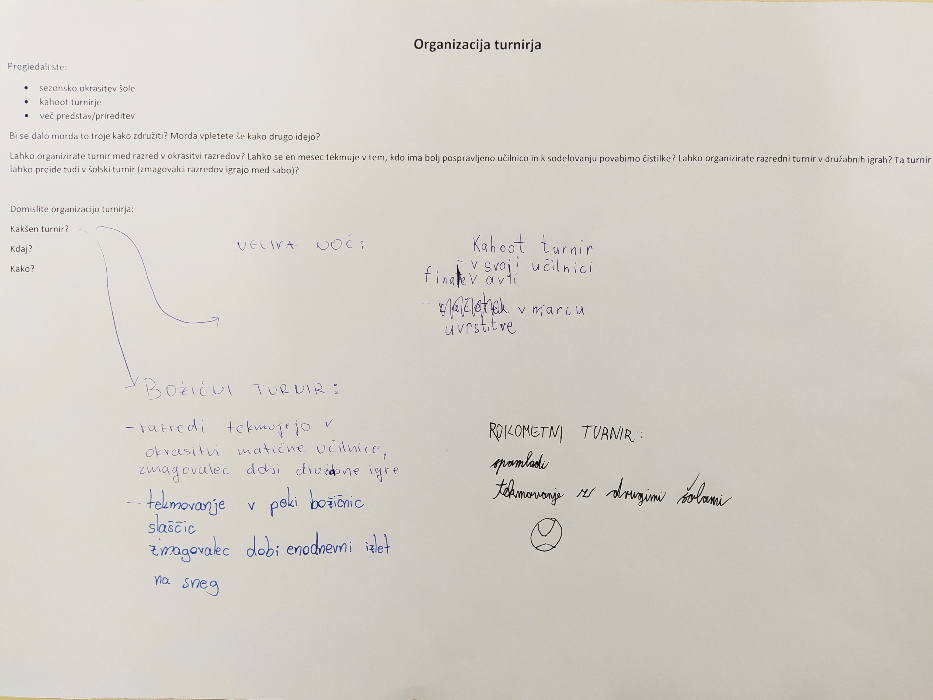 Organizacija turnirja
Pregledali ste:
• sezonsko okrasitev šole
• kahoot turnirje
• več predstav/prireditev
Bi se dalo morda to troje kako združiti? Morda vpletete še kako drugo idejo?
Lahko organizirate turnir med razred v okrasitvi razredov? Lahko se en mesec tekmuje v tem, kdo ima bolj pospravljeno učilnico in k sodelovanju povabimo čistilke? Lahko organizirate razredni turnir v družabnih igrah? Ta turnir
lahko preide tudi v šolski turnir (zmagovalci razredov igrajo med sabo)?
Domislite organizacijo turnirja:
Kakšen turnir?
Kdaj?
Kako?
VELIKA NOČ:
Kahoot turnir
v svoji učilnici
finale v avli
v marcu
uvrstitve
BOŽIČNI TURNIR:
- razredi tekmujejo v
okrasitvi matične učilnice,
zmagovalec dobi družabne igre
- tekmovanje v peki božičnic
slaščic
zmagovalec dobi enodnevni izlet
na sneg
ROKOMETNI TURNIR:
spomladi
tekmovanje z drugimi šolami